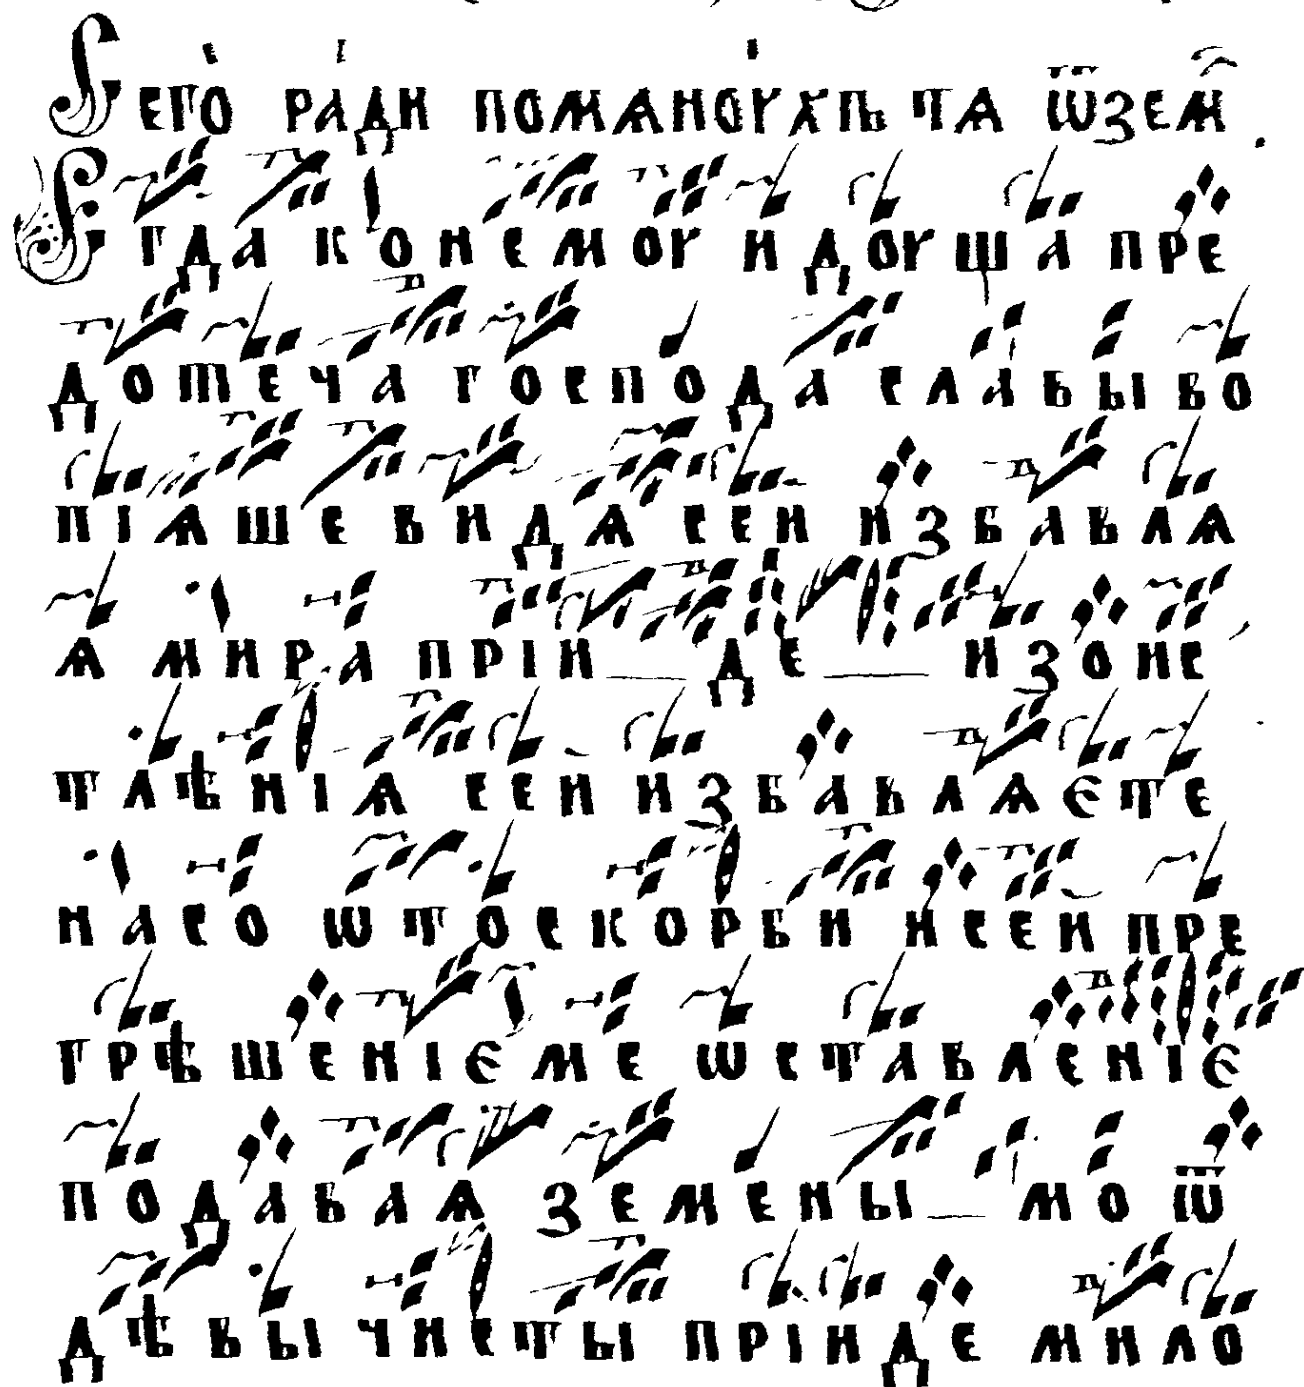 Сего̀ ра́ди помѧноу́хъ тѧ ѿ зем̑
Егда ко немоу и доуша пре
дотеча господа славы во
піѧше видѧ сей избавлѧ
ѧ мира пріи де изоне
тлѣніѧ сей избавлѧєте
насо ѡтоскорби и сей пре
грѣшеніє ме ѡставленіє
подаваѧ земены мо ѿ
дѣвы чисты прінде мило